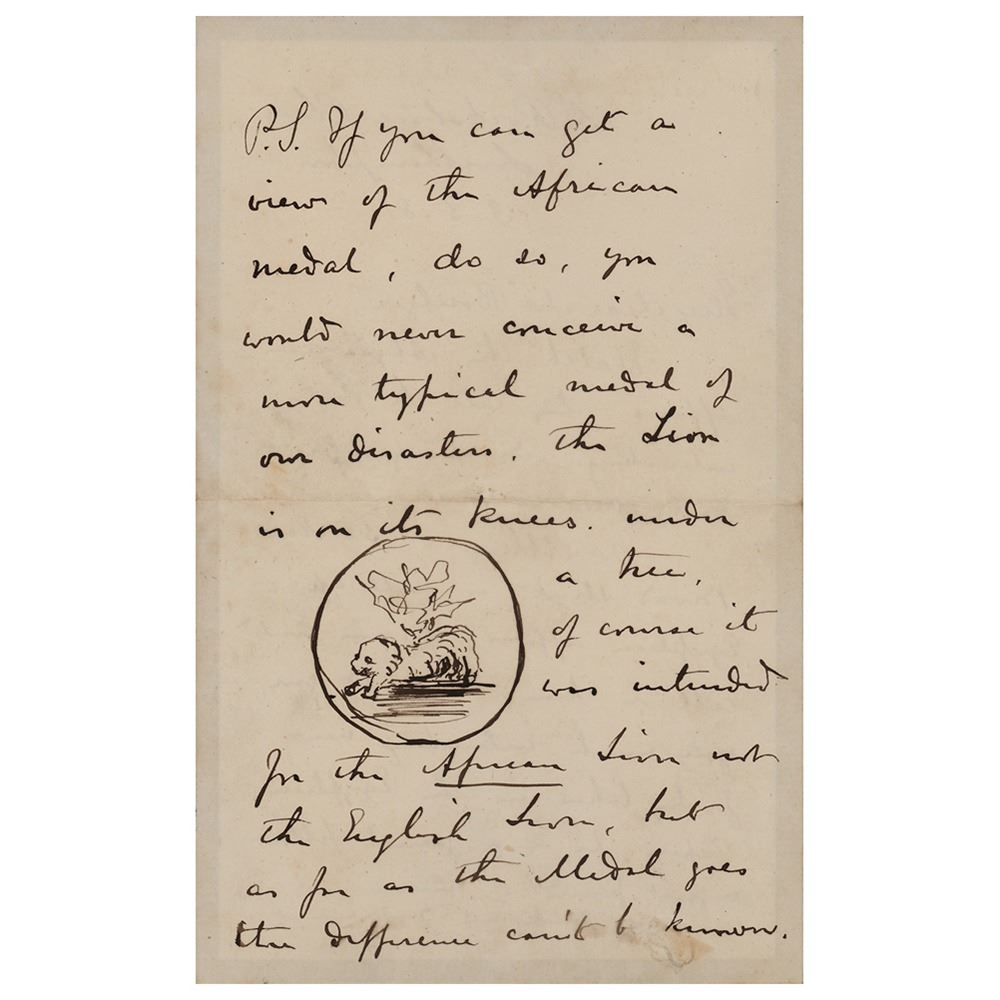 P.S. If you can get a
view of the African
medal, do so, you
would never conceive a
more typical medal of
our disasters. the Lion
is on its knees. under
a tree,
of course it
was intended
for the African Lion not
the English Lion, but
as far as the Medal goes
the difference can't b known.